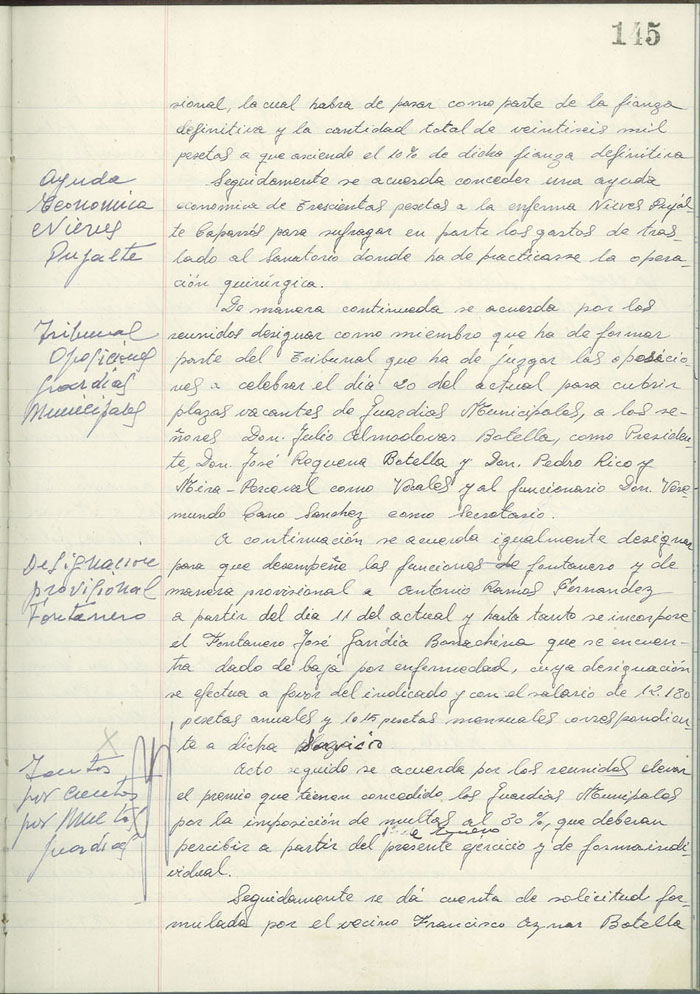 145
sional, la cual habra de pasar como parte de la fianza
definitiva y la cantidad total de veintiseis mil
pesetas a que asciende el 10% de dicha fianza definitiva
Ayuda
Economica
Nieves
Pujalte
Seguidamente se acuerda conceder una ayuda
economica de trescientas pesetas a la enferma Nieves Pujal-
te Caparrós para sufragar en parte los gastos de tras-
lado al Sanatorio donde ha de practicarse la opera-
ción quirúrgica.
Tribunal
Oposiciones
Guardias
Municipales
De manera continuada se acuerda por los
reunidos designar como miembro que ha de formar
parte del Tribunal que ha de juzgar las oposicio-
nes a celebrar el día 20 del actual para cubrir
plazas vacantes de Guardias Municipales, a los se-
ñores Don. Julio Almodovar Botella, como Presiden-
te, Don. José Requena Botella y Don. Pedro Rico y
Mira-Perceval como Vocales y al funcionario Don. Vere-
mundo Cano Sanchez como Secretario.
Designacion
provisional
Fontanero
A continuación se acuerda igualmente designar
para que desempeñe las funciones de fontanero y de
manera provisional a Antonio Ramos Fernandez
a partir del dia 11 del actual y hasta tanto se incorpore
el Fontanero José Garidia Bonachina que se encuen-
tra dado de baja por enfermedad, cuya designación
se efectua a favor del indicado y con el salario de 12.180
pesetas anuales y 1015 pesetas mensuales correspondien-
te a dicho Servicio
X
Tantos
por cientos
por multas
guardias
Acto seguido se acuerda por los reunidos elevar
el premio que tienen concedido los Guardias Municipales
por la imposición de multas al 30 %, que deberan
1º de enero
percibir a partir del presente ejercicio y de forma indi-
vidual.
Seguidamente se dá cuenta de solicitud for-
mulada por el vecino Francisco Aznar Botella